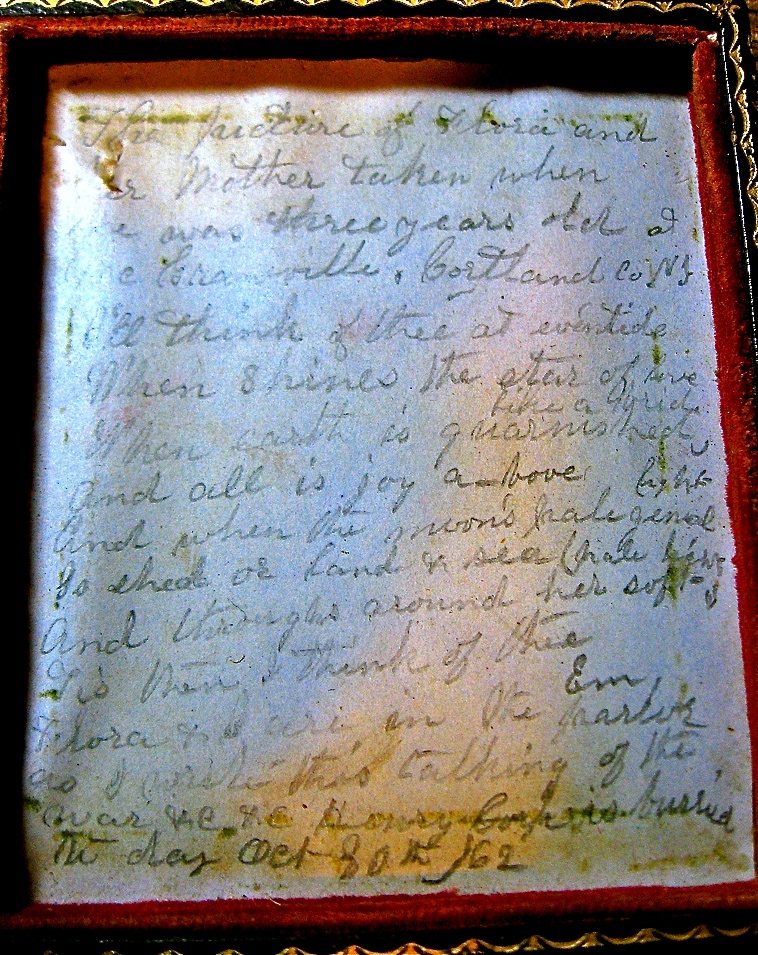 The picture of Flora and
her Mother taken when
she was three years old I
Granville, Cortland Co NY
I'll think of thee at eventide
When shines the star of love
When earth is quarnished like a brid
And all is joy a-bove
And when the moon's pale gental light
Is shed or Land & sea (pale
And throughs around her soft
Tis then I think of thee
Em,
Flora & I are in the parlor
as I write this talking of the
war &c &c Henry is burried
the day Oct 30th /62